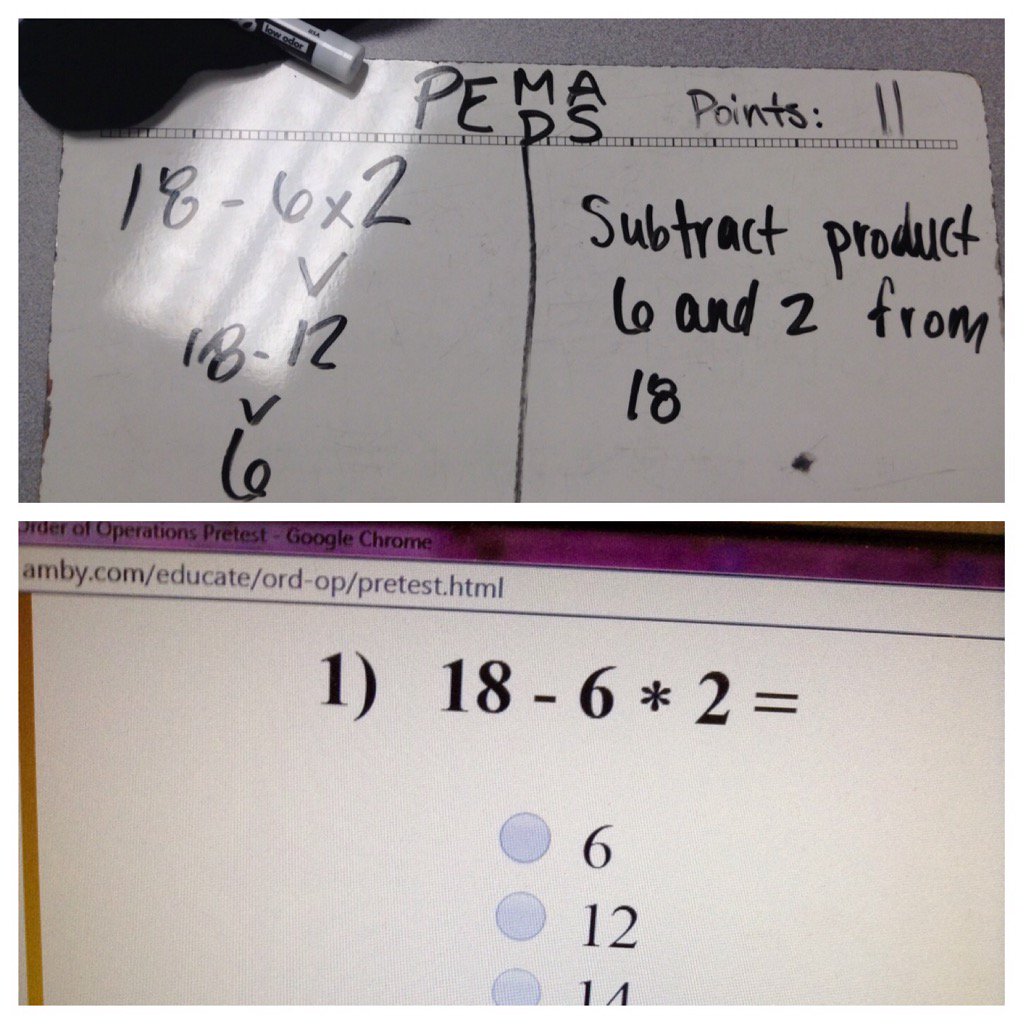 low odor
PE M A
D S
Points: 11
18 - 6x2
18-12
6
Subtract product
6 and 2 from
18
Order of Operations Pretest - Google Chrome
amby.com/educate/ord-op/pretest.html
1) 18 - 6 * 2 =
6
12
14